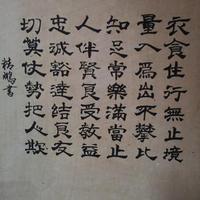 衣食住行無止境
量入為出不攀比
知足常樂滿當止
人伴賢良受教益
忠誠豁達結良友
切莫仗勢把人欺
精鵬書